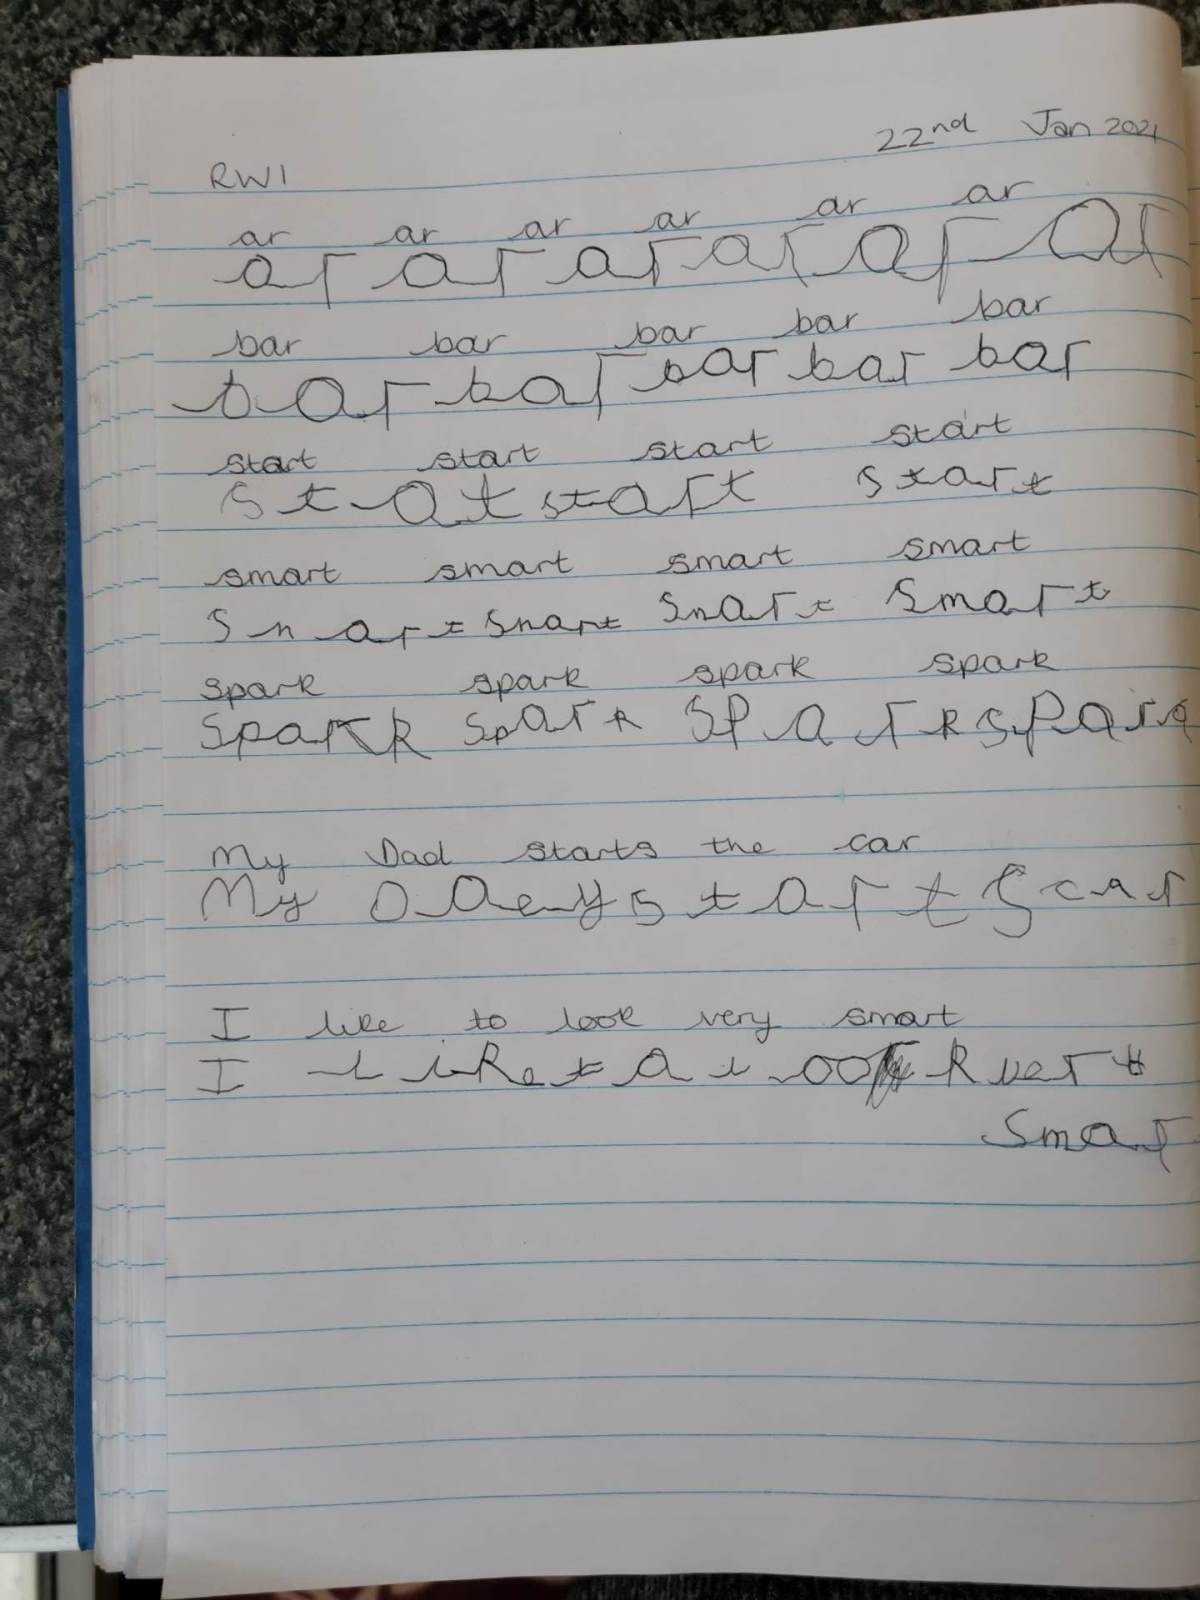 22nd Jan 2021
RWI
ar ar ar ar ar ar
ar ar ar ar ar ar
bar bar bar bar bar
bar bar bar bar bar
start start start start
stat start start
smart smart smart smart
snart snart snart smart
spark spark spark spark
spark spark spark spark
My Dad starts the car
My start car
I like to look very smart
I like ta look ver
smar